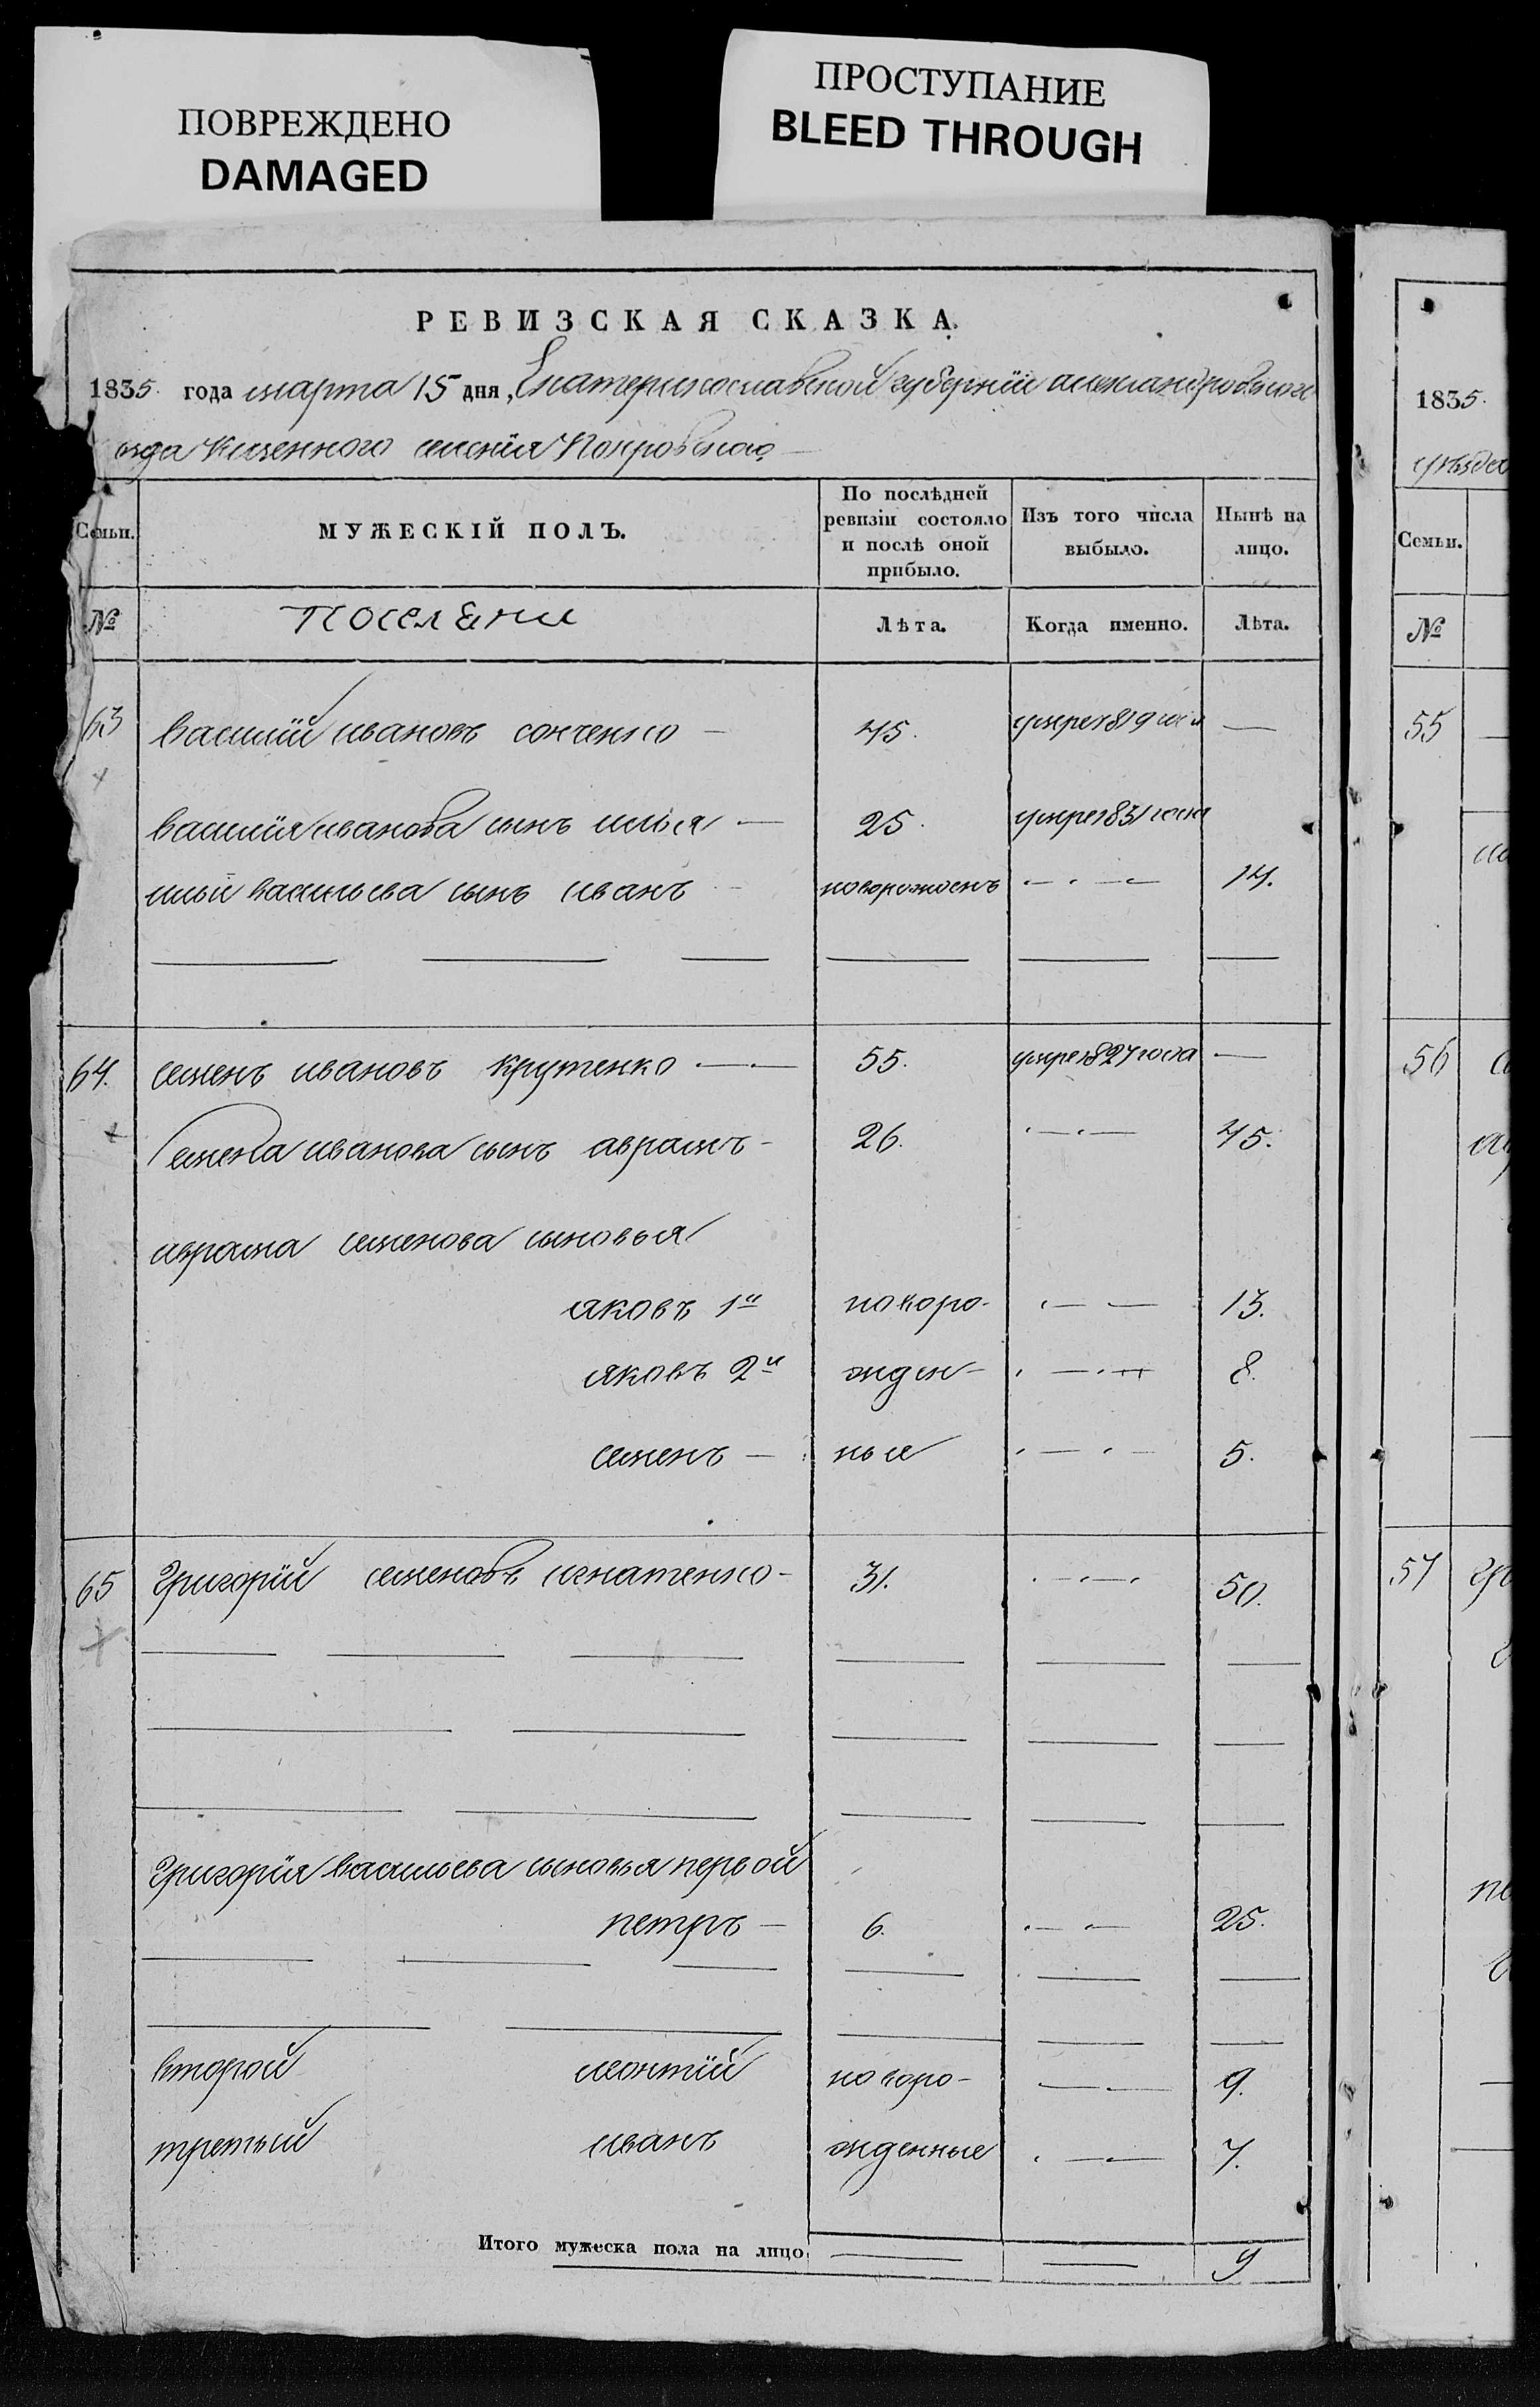 ПОВРЕЖДЕНО
DAMAGED
ПРОСТУПАНИЕ
BLEED THROUGH
РЕВИЗСКАЯ СКАЗКА.
1835. года марта 15 дня, Екатеринославской губернии александровского
езда Казенного селения Покровского
Семьи. МУЖЕСКІЙ ПОЛЪ. По послѣдней ревизіи состояло и послѣ оной прибыло. Изъ того числа выбыло. Нынѣ на лицо.
№ поселяни Лѣта. Когда именно. Лѣта.
63 василий ивановъ сонченко — 45. умре 1819 года —
василия иванова сынъ илья — 25. умре 1831 года
ильи васильева сынъ иванъ — новорожденъ — 14.
64. семенъ ивановъ крутенко — 55. умре 1827 года —
семена иванова сынъ аврамъ - 26. — 45.
аврама семенова сыновья
яковъ 1й новоро- — 13.
яковъ 2й жден- — 8.
семенъ — ные — 5.
65 Григорий семеновъ игнатенко - 31. — 50.
Григория васильева сыновья первой
петръ — 6. — 25.
второй леонтий новоро- — 9.
третий иванъ жденные — 7.
Итого мужеска пола на лицо — — 9
1835.
уѣзда
Семьи.
№
55
56
57